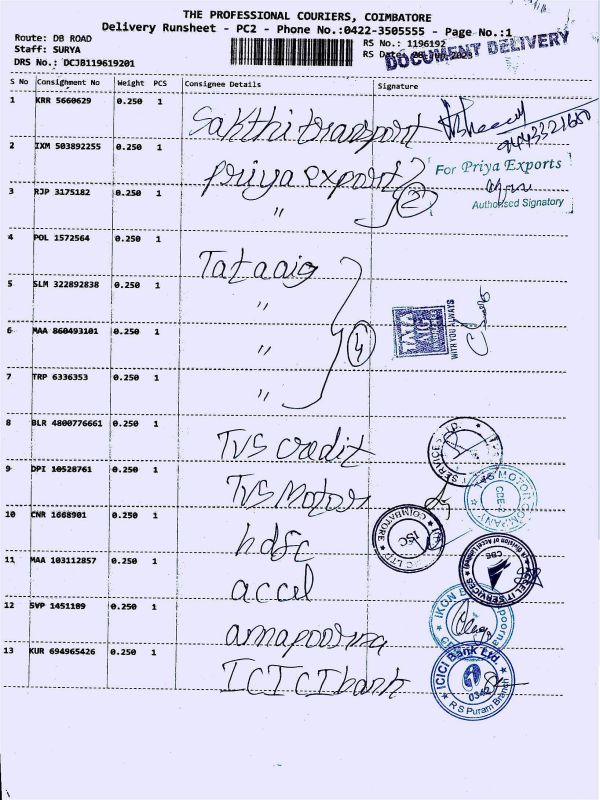 THE PROFESSIONAL COURIERS, COIMBATORE
Delivery Runsheet - PC2 - Phone No.:0422-3505555 - Page No.:1
Route: DB ROAD
Staff: SURYA
DRS No.: DCJB119619201
RS No.: 1196192
RS Date:
DOCUMENT DELIVERY
S No Consignment No Weight PCS Consignee Details Signature
1 KRR 5660629 0.250 1 Sakthi transport
2 IXM 503892255 0.250 1 Priya export
For Priya Exports
Authorised Signatory
3 RJP 3175182 0.250 1 " 2
4 POL 1572564 0.250 1 Tata aig
5 SLM 322892838 0.250 1 "
TATA AIG
WITH YOU ALWAYS
6 MAA 860493101 0.250 1 " 4
7 TRP 6336353 0.250 1 "
8 BLR 4800776661 0.250 1 TVS credit
9 DPI 10528761 0.250 1 TVS Motor
10 CNR 1668901 0.250 1 hdfc
COIMBATORE
11 MAA 103112857 0.250 1 accel
ACCEL IT SERVICES
CBE
12 SVP 1451189 0.250 1 annapoorna
13 KUR 694965426 0.250 1 ICICI bank
ICICI Bank Ltd.
0342
R S Puram Branch